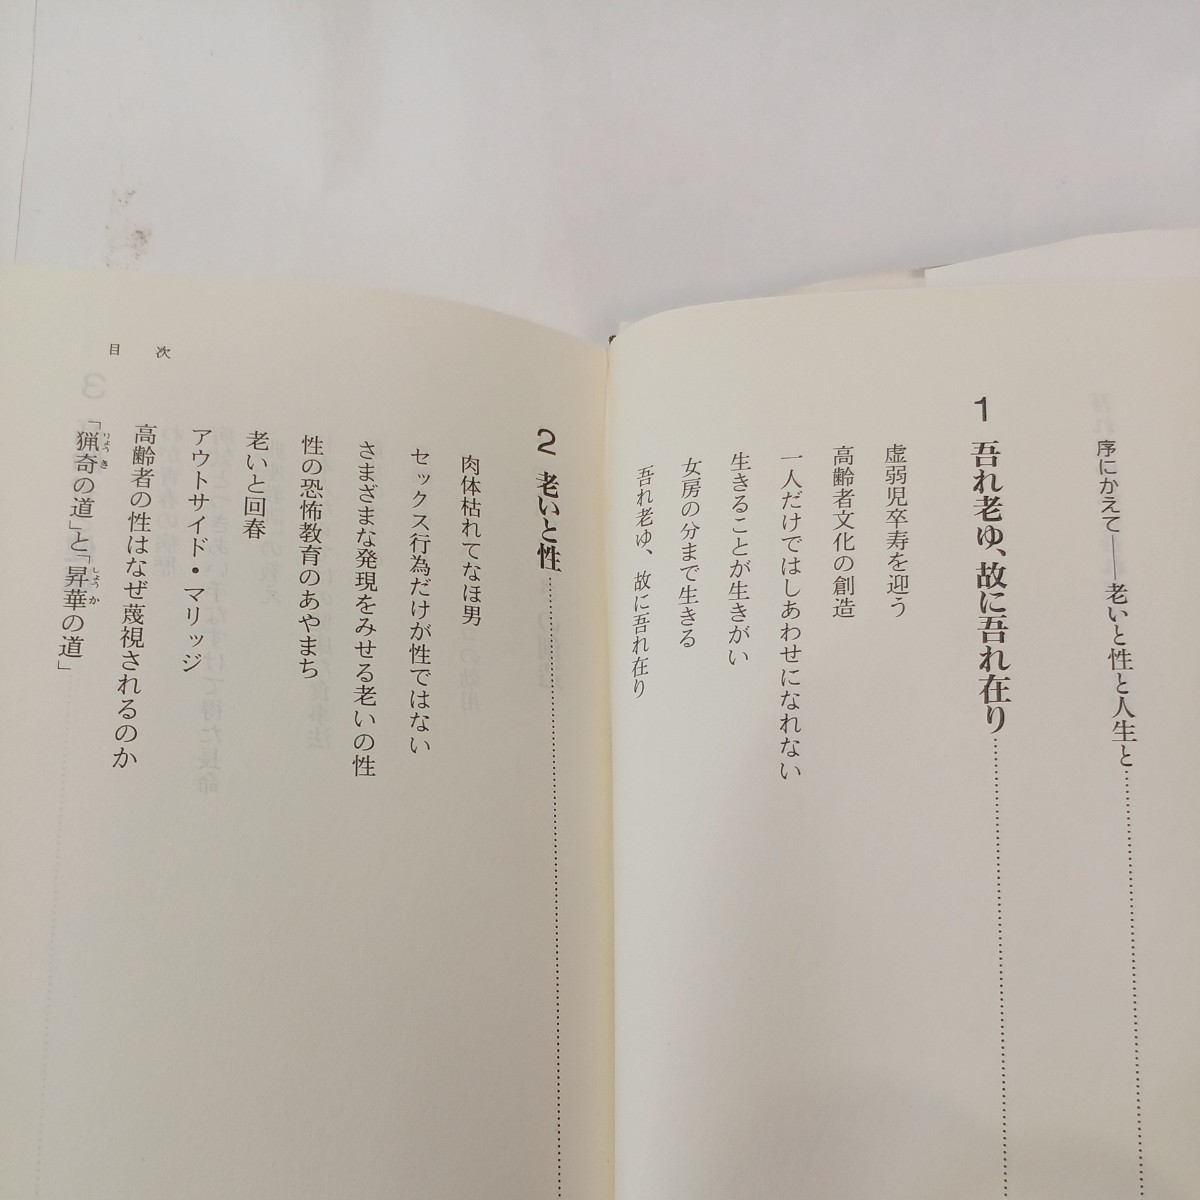 序にかえて――老いと性と人生と
1 吾れ老ゆ、故に吾れ在り
虚弱児卒寿を迎う
高齢者文化の創造
一人だけではしあわせになれない
生きることが生きがい
女房の分まで生きる
吾れ老ゆ、故に吾れ在り
2 老いと性
肉体枯れてなほ男
セックス行為だけが性ではない
さまざまな発現をみせる老いの性
性の恐怖教育のあやまち
老いと回春
アウトサイド・マリッジ
高齢者の性はなぜ蔑視されるのか
「猟奇の道」と「昇華の道」
りょうき
しょうか
目次